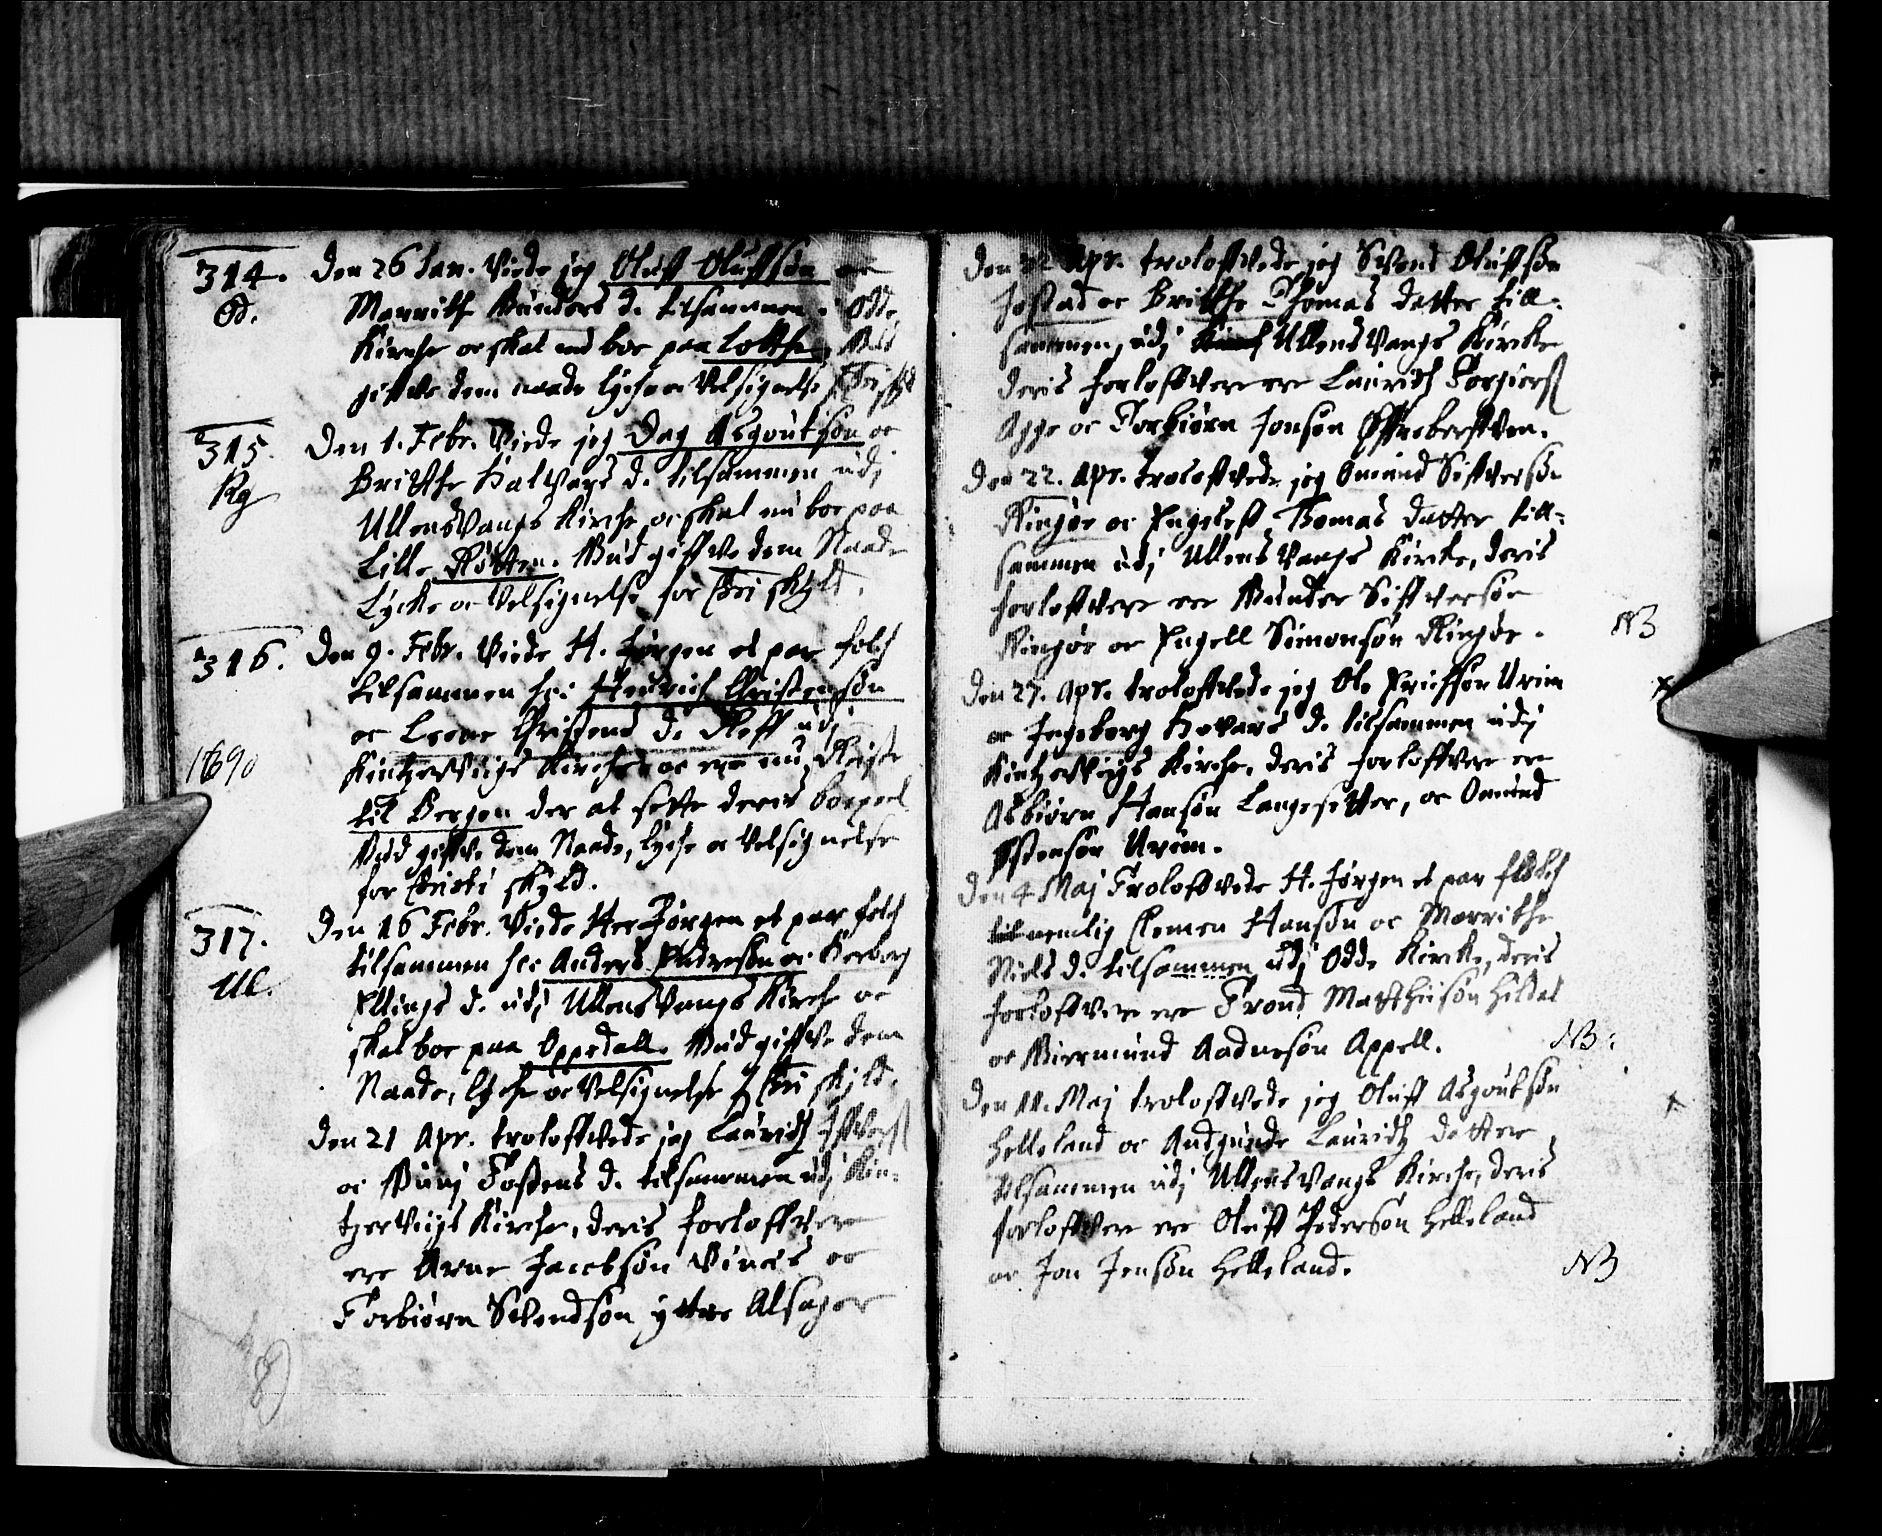 314. Den 26 Jan. Viede jeg Oluff Oluffsøn oc
Od. Marrithe Gunders d. tilsammen i Odde
Kirche oc skal nu boe paa Lothe, Gud
giffve dem naade lyche oc Velsignelse f. Chri skyld
315. Den 1. Febr. Viede jeg Dag Asgoutsøn oc
Kg Britthe Halvars d. tilsammen udj
Ullensvangs Kirche oc skal nu boe paa
Lille Røtten. Gud giffve dem Naade
Lycke oc Velsignelse for Chri skyld.
316. Den 9. Febr. Viede H. Jørgen et par folch
tilsammen sc: Henrich Christensøn
oc Christens d. udj
1690 Kintzerviigs Kirche oc ere nu Reiste
til Bergen der at sette deris boepæl
Gud giffve dem Naade, lyche oc Velsignelse
for Christi skyld.
317. Den 16 Febr. Viede Her Jørgen et par folch
Ul. tilsammen sc: Anders Pedersøn oc Herborg
Ellings d. udj Ullensvangs Kirche oc
skal boe paa Oppedall. Gud giffve dem
Naade, lyche oc Velsignelse f. Chri skyld.
Den 21 Apr. troloffvede jeg Lauridtz
oc Guri Tostens d. tilsammen udj Kin-
tzerviigs Kirche, deris forloffvere
ere Arne Jacobsøn Vines oc
Torbiørn Svendsøn yttre Alsager
Den 22 Apr. troloffvede jeg Svend Oluffsøn
Jostad oc Britthe Thomas datter till-
sammen, udj Ullensvangs Kircke
deris forloffvere ere Lauridtz Torgiers
Agge oc Torbiørn Jonsøn
Den 22. Apr. troloffvede jeg Omund Siffversøn
Ringøe oc Engelest Thomas datter till-
sammen udj Ullensvangs Kircke, deris
forloffvere ere Gunder Siffversøn
Ringøe oc Engell Simonsøn Ringøe. NB
Den 27. Apr. troloffvede jeg Ole Erichsøn Urim x
oc Ingeborg Havars d. tilsammen udj
Kintzerviigs Kirche, deris forloffvere ere
Asbiørn Hansøn Langesetter, oc Omund
Ostensøn Urim.
Den 4 Maj Troloffvede H. Jørgen et par folch
nemlig Clemen Hansøn oc Marrithe
Niels d. tilsammen udj Odde Kircke, deris
forloffvere ere Trond Matthiisøn Hildal
oc Giermund Aadnesøn Appell. NB:
Den 11. Maj troloffvede jeg Oluff Asgoutsøn x
Helleland oc Audgunde Lauridtz datter
tilsammen udj Ullensvangs Kirche, deris
forloffvere ere Oluff Pedersøn Helleland
oc Jon Jensøn Helleland. NB